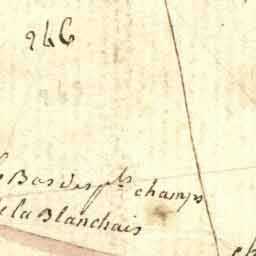 246
Bas des pts champs
de la Blanchais